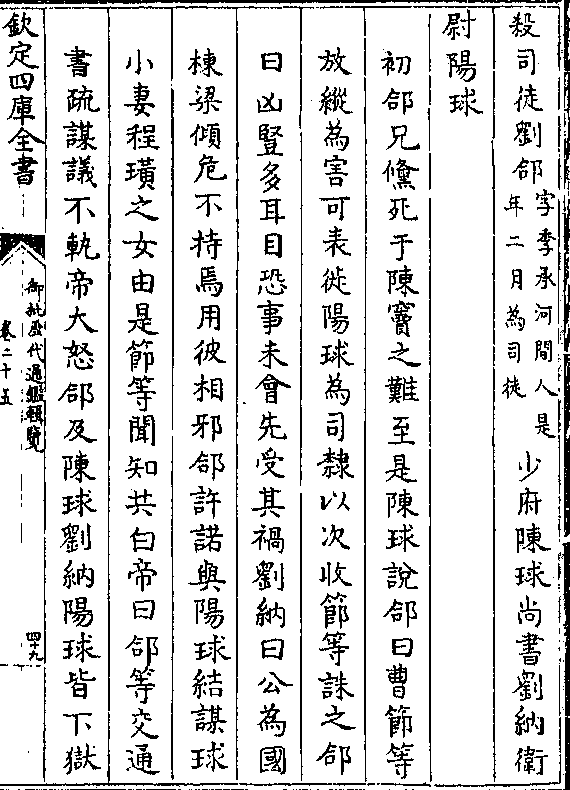 殺司徒劉郃字季承河間人是年二月為司徒少府陳球尚書劉納衛
尉陽球
初郃兄儵死于陳竇之難至是陳球說郃曰曹節等
放縱為害可表徙陽球為司隸以次收節等誅之郃
曰凶豎多耳目恐事未會先受其禍劉納曰公為國
棟梁傾危不持焉用彼相邪郃許諾與陽球結謀球
小妻程璜之女由是節等聞知共白帝曰郃等交通
書疏謀議不軌帝大怒郃及陳球劉納陽球皆下獄
欽定四庫全書
御批歷代通鑑輯覽
卷二十五
四十九